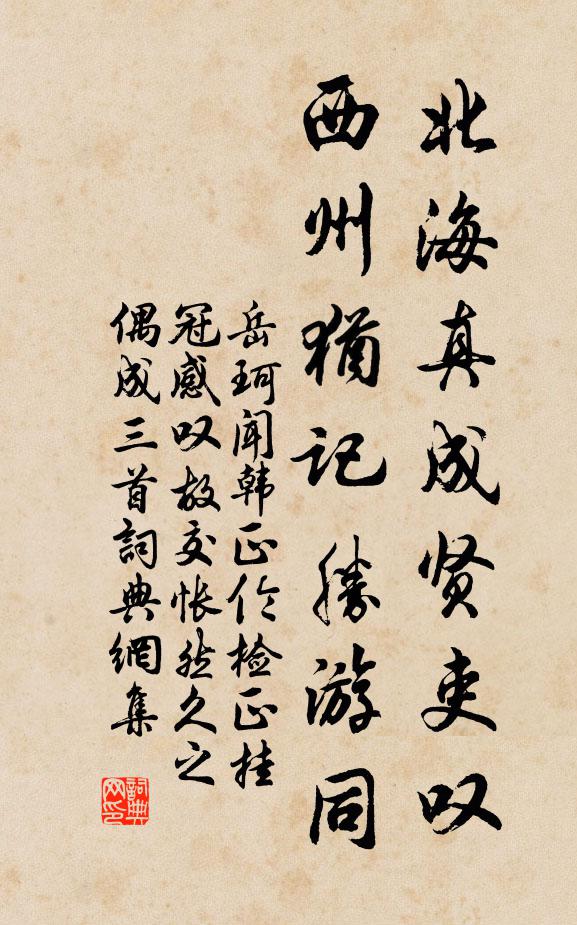 北海真成贤吏叹
西州犹记胜游同
岳珂闻韩正伦检正挂
冠感叹故交怅然久之
偶成三首词典網集
詞典网印